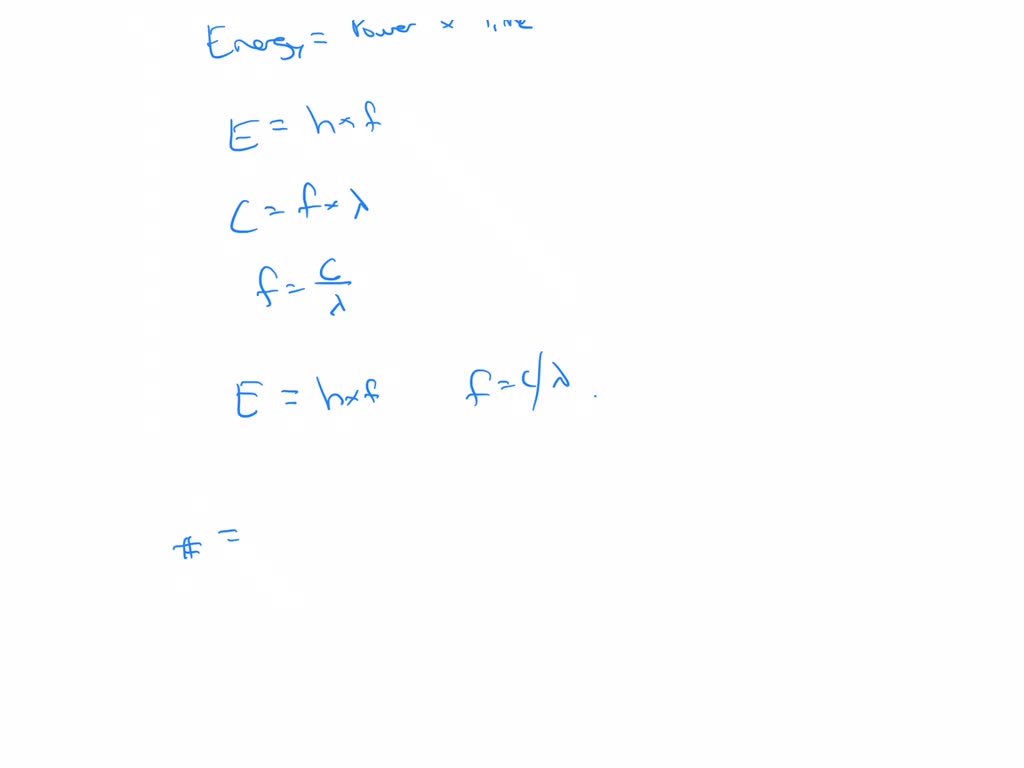 Energy = Power × time
E = h × f
C = f × λ
f = C / λ
E = h × f f = c/λ .
# =